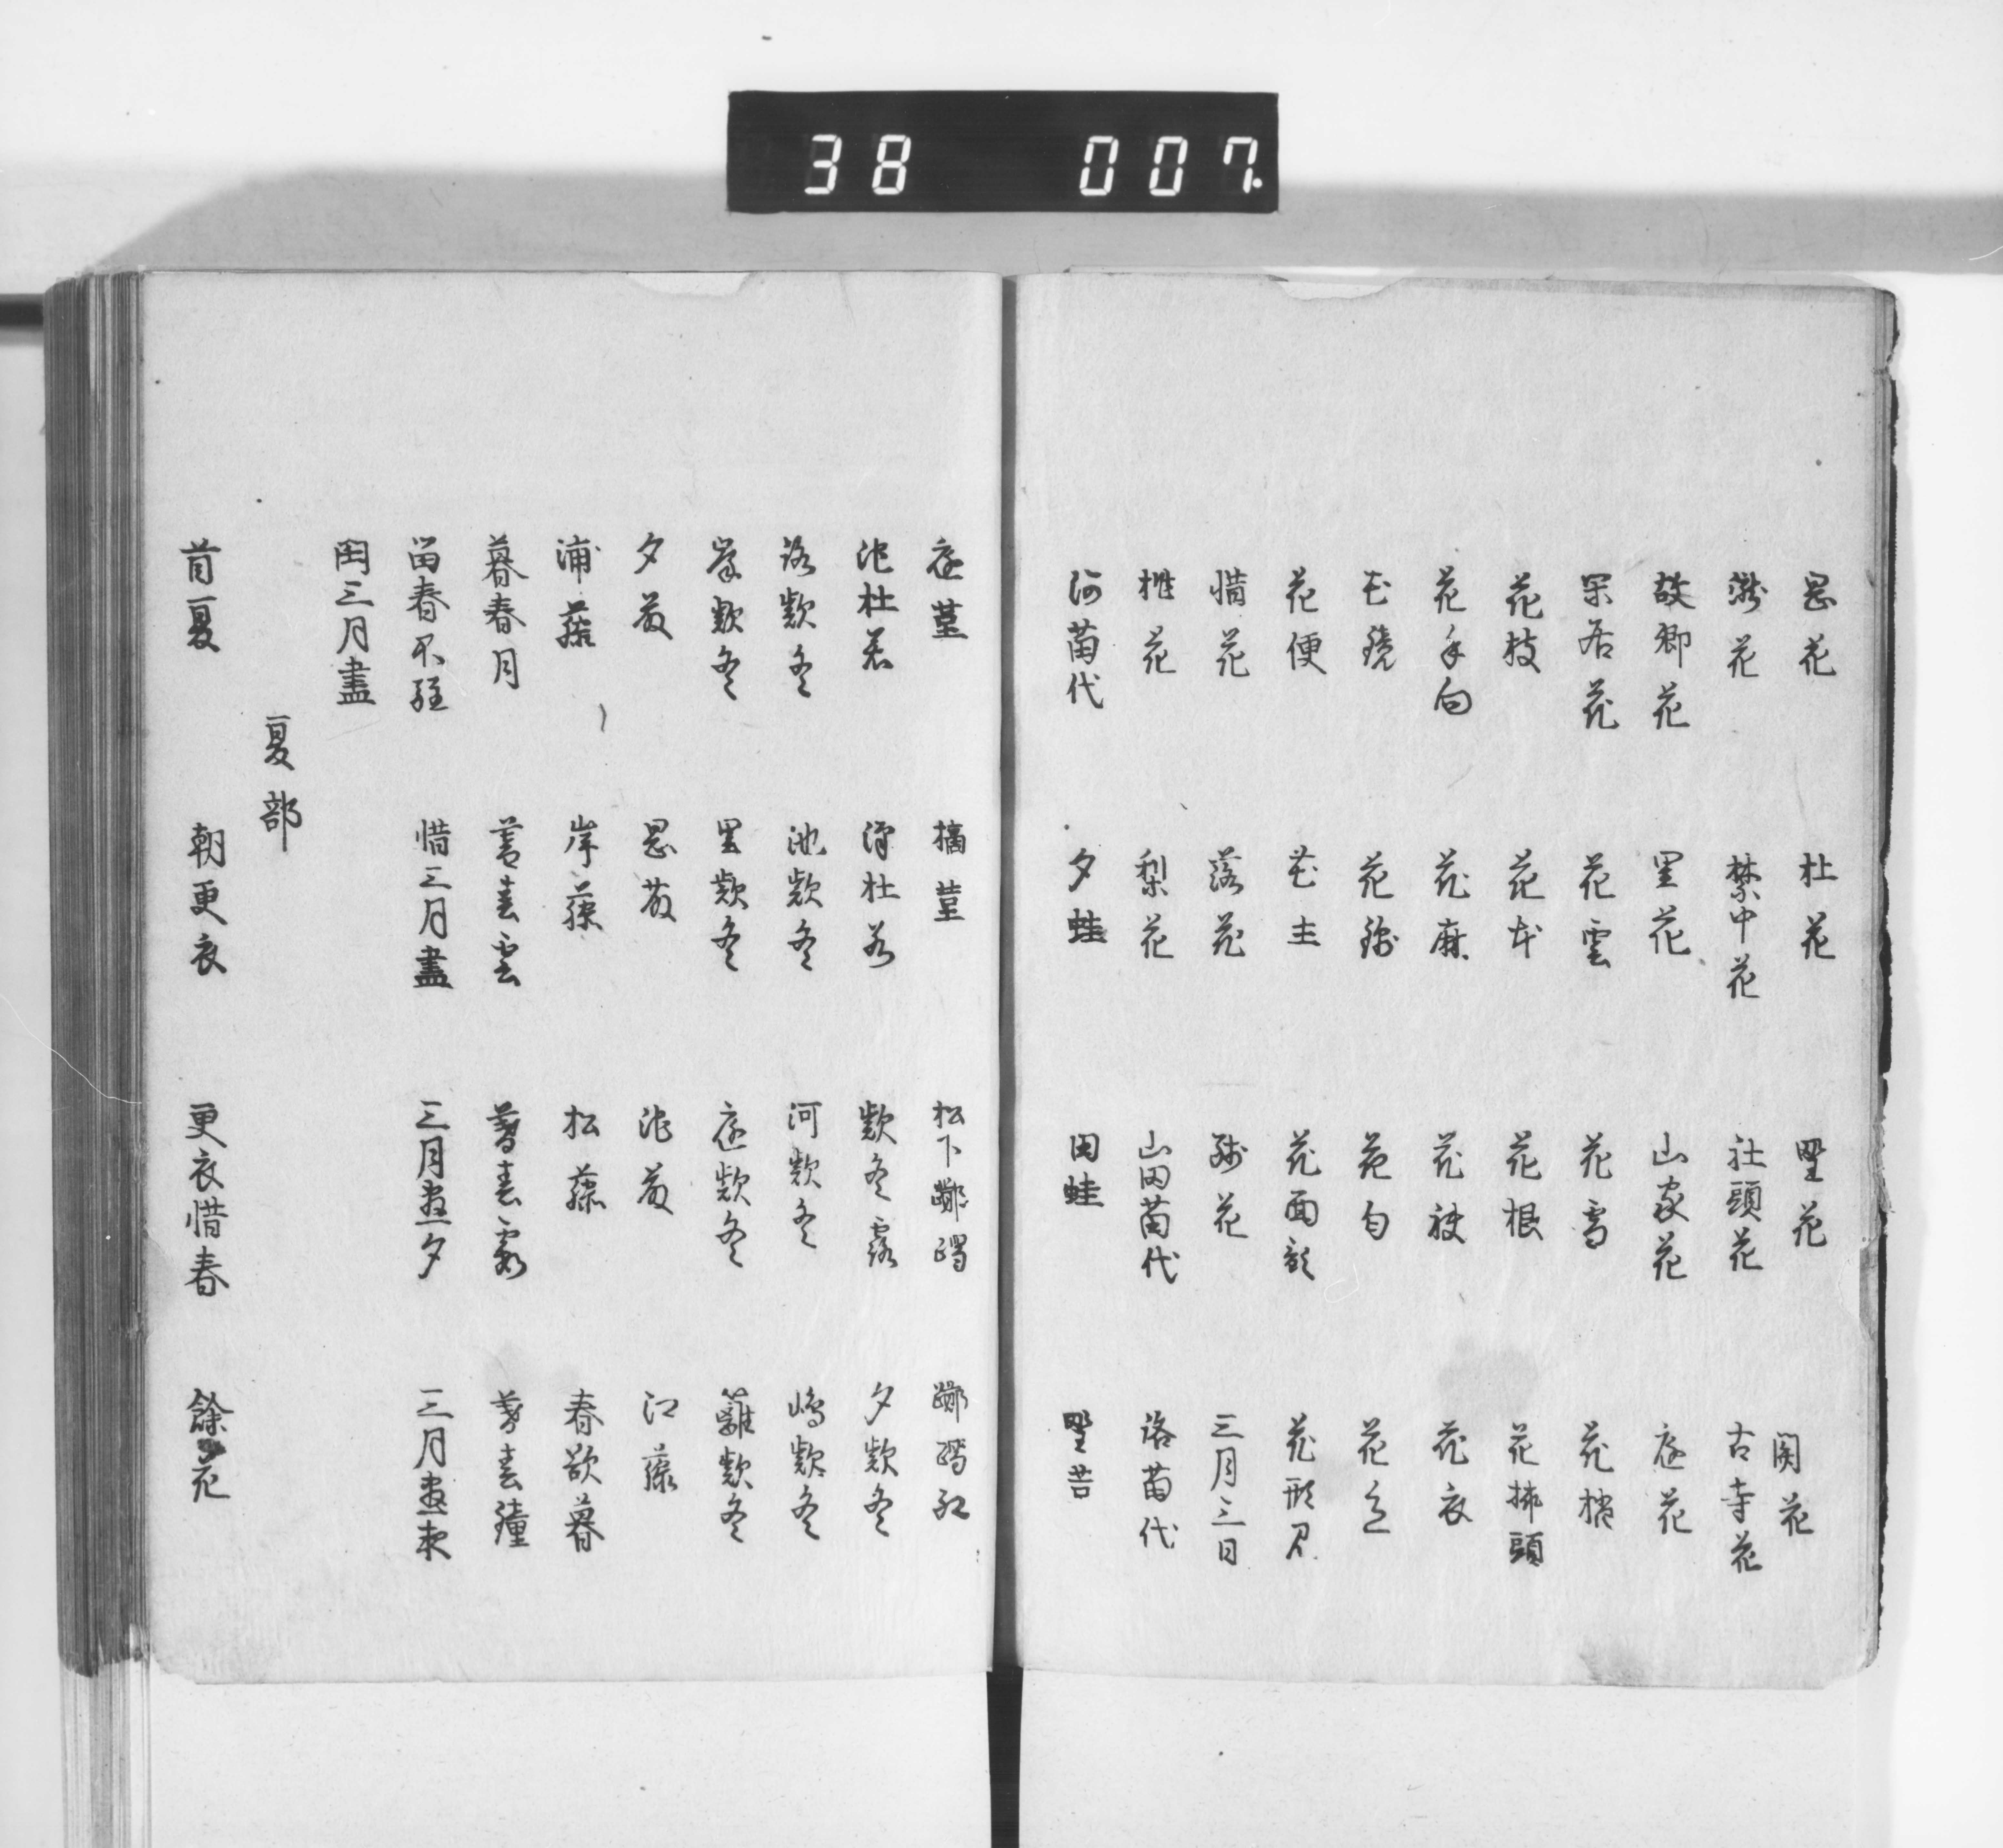 38 007
岡花 杜花 野花 関花
瀧花 禁中花 社頭花 古寺花
故郷花 里花 山家花 庭花
閑居花 花雲 花雪 花梢
花枝 花本 花根 花挿頭
花手向 花麻 花袂 花衣
花鏡 花錦 花匂 花色
花便 花主 花面影 花形見
惜花 落花 残花 三月三日
椎花 梨花 山田苗代 苗代
河苗代 夕蛙 田蛙 野
庭菫 摘菫 松下躑躅 躑躅紅
沼杜若 沢杜若 款冬露 夕款冬
款冬 池款冬 河款冬 嶋款冬
岸款冬 里款冬 庭款冬 籬款冬
夕藤 江藤
浦藤 岸藤 松藤 春欲暮
暮春月 暮春雲 暮春霞 暮春鐘
留春不駐 惜三月盡 三月盡夕 三月盡夜
閏三月盡
夏部
首夏 朝更衣 更衣惜春 餘花